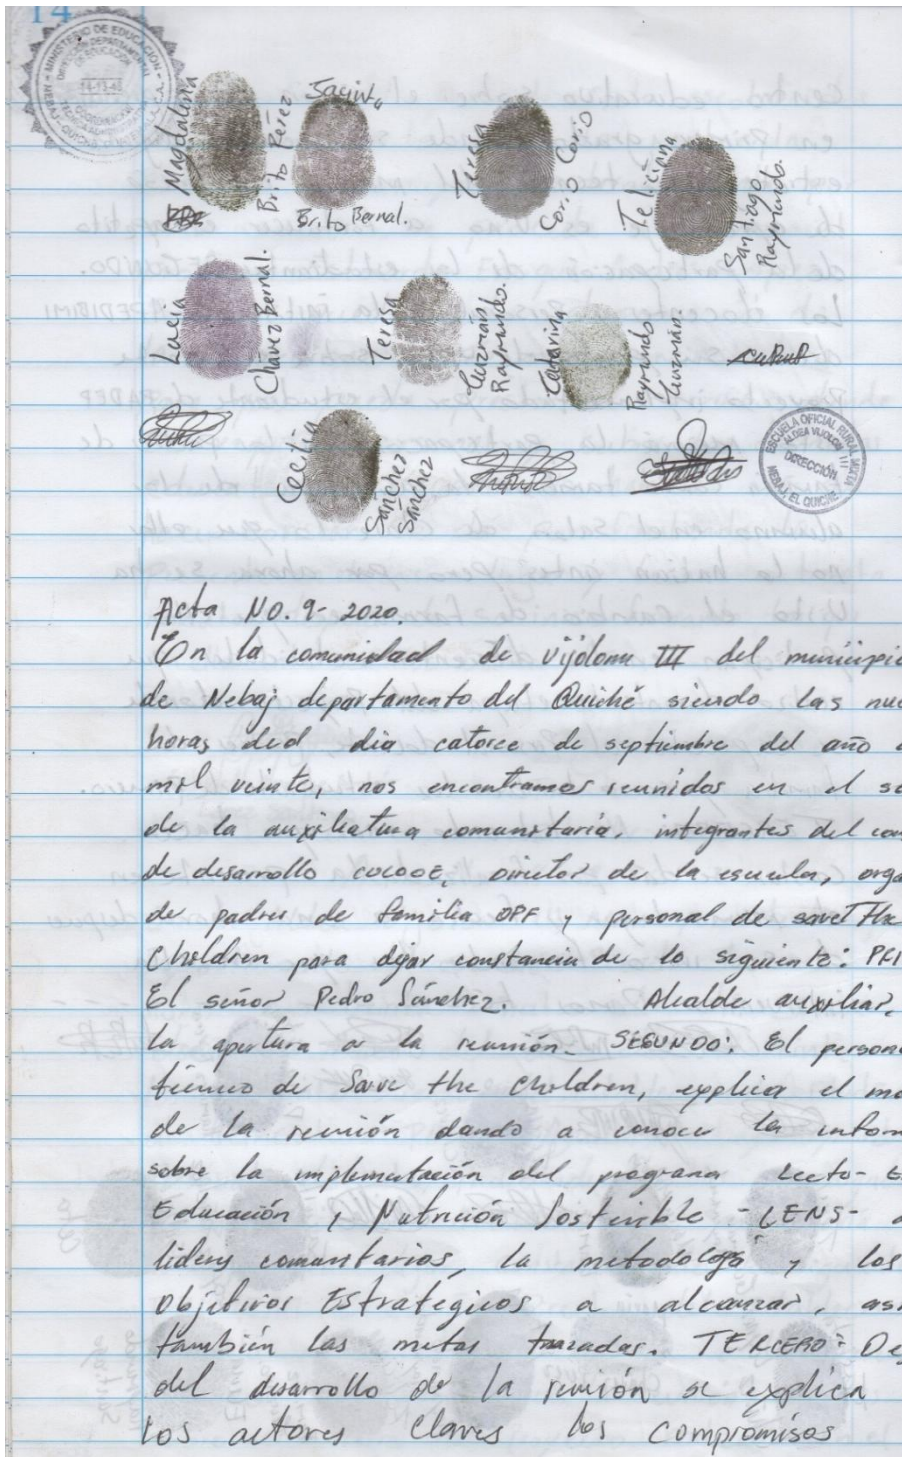 14
MINISTERIO DE EDUCACIÓN
DIRECCIÓN DEPARTAMENTAL DE EDUCACIÓN
14-13-
NEBAJ, QUICHÉ
Magdalena
Brito Pérez
Jacinta
Brito Bernal.
Teresa
Corio Corio
Feliciana
Santiago
Raymundo.
Lucia
Chávez Bernal.
Teresa
Guzmán
Raymundo.
Catarina
Raymundo
Guzmán.
Cecilia
Sánchez
Sánchez
ESCUELA OFICIAL RURAL MIXTA
ALDEA VIJOLOM III
DIRECCIÓN
NEBAJ, EL QUICHÉ
Acta NO. 9- 2020.
En la comunidad de vijolom III del municipio
de Nebaj departamento del Quiché siendo las nue
horas ded dia catorce de septiembre del año
mil veinte, nos encontramos reunidos en el sa
de la auxiliatura comunitaria, integrantes del con
de desarrollo COCODE, Director de la escuela, orga
de padres de familia OPF y personal de savet the
Children para dejar constancia de lo siguiente: PRI
El señor Pedro Sánchez. Alcalde auxiliar,
la apertura a la reunión. SEGUNDO: El persona
técnico de Save the Children, explica el mo
de la reunión dando a conocer la inform
sobre la implementación del programa Lecto- Es
Educación y Nutrición Sostenible -LENS- a
lideres comunitarios, la metodología y los
Objetivos Estratégicos a alcanzar, asi
también las metas trazadas. TERCERO: De
del desarrollo de la reunión se explica
los actores claves los compromisos